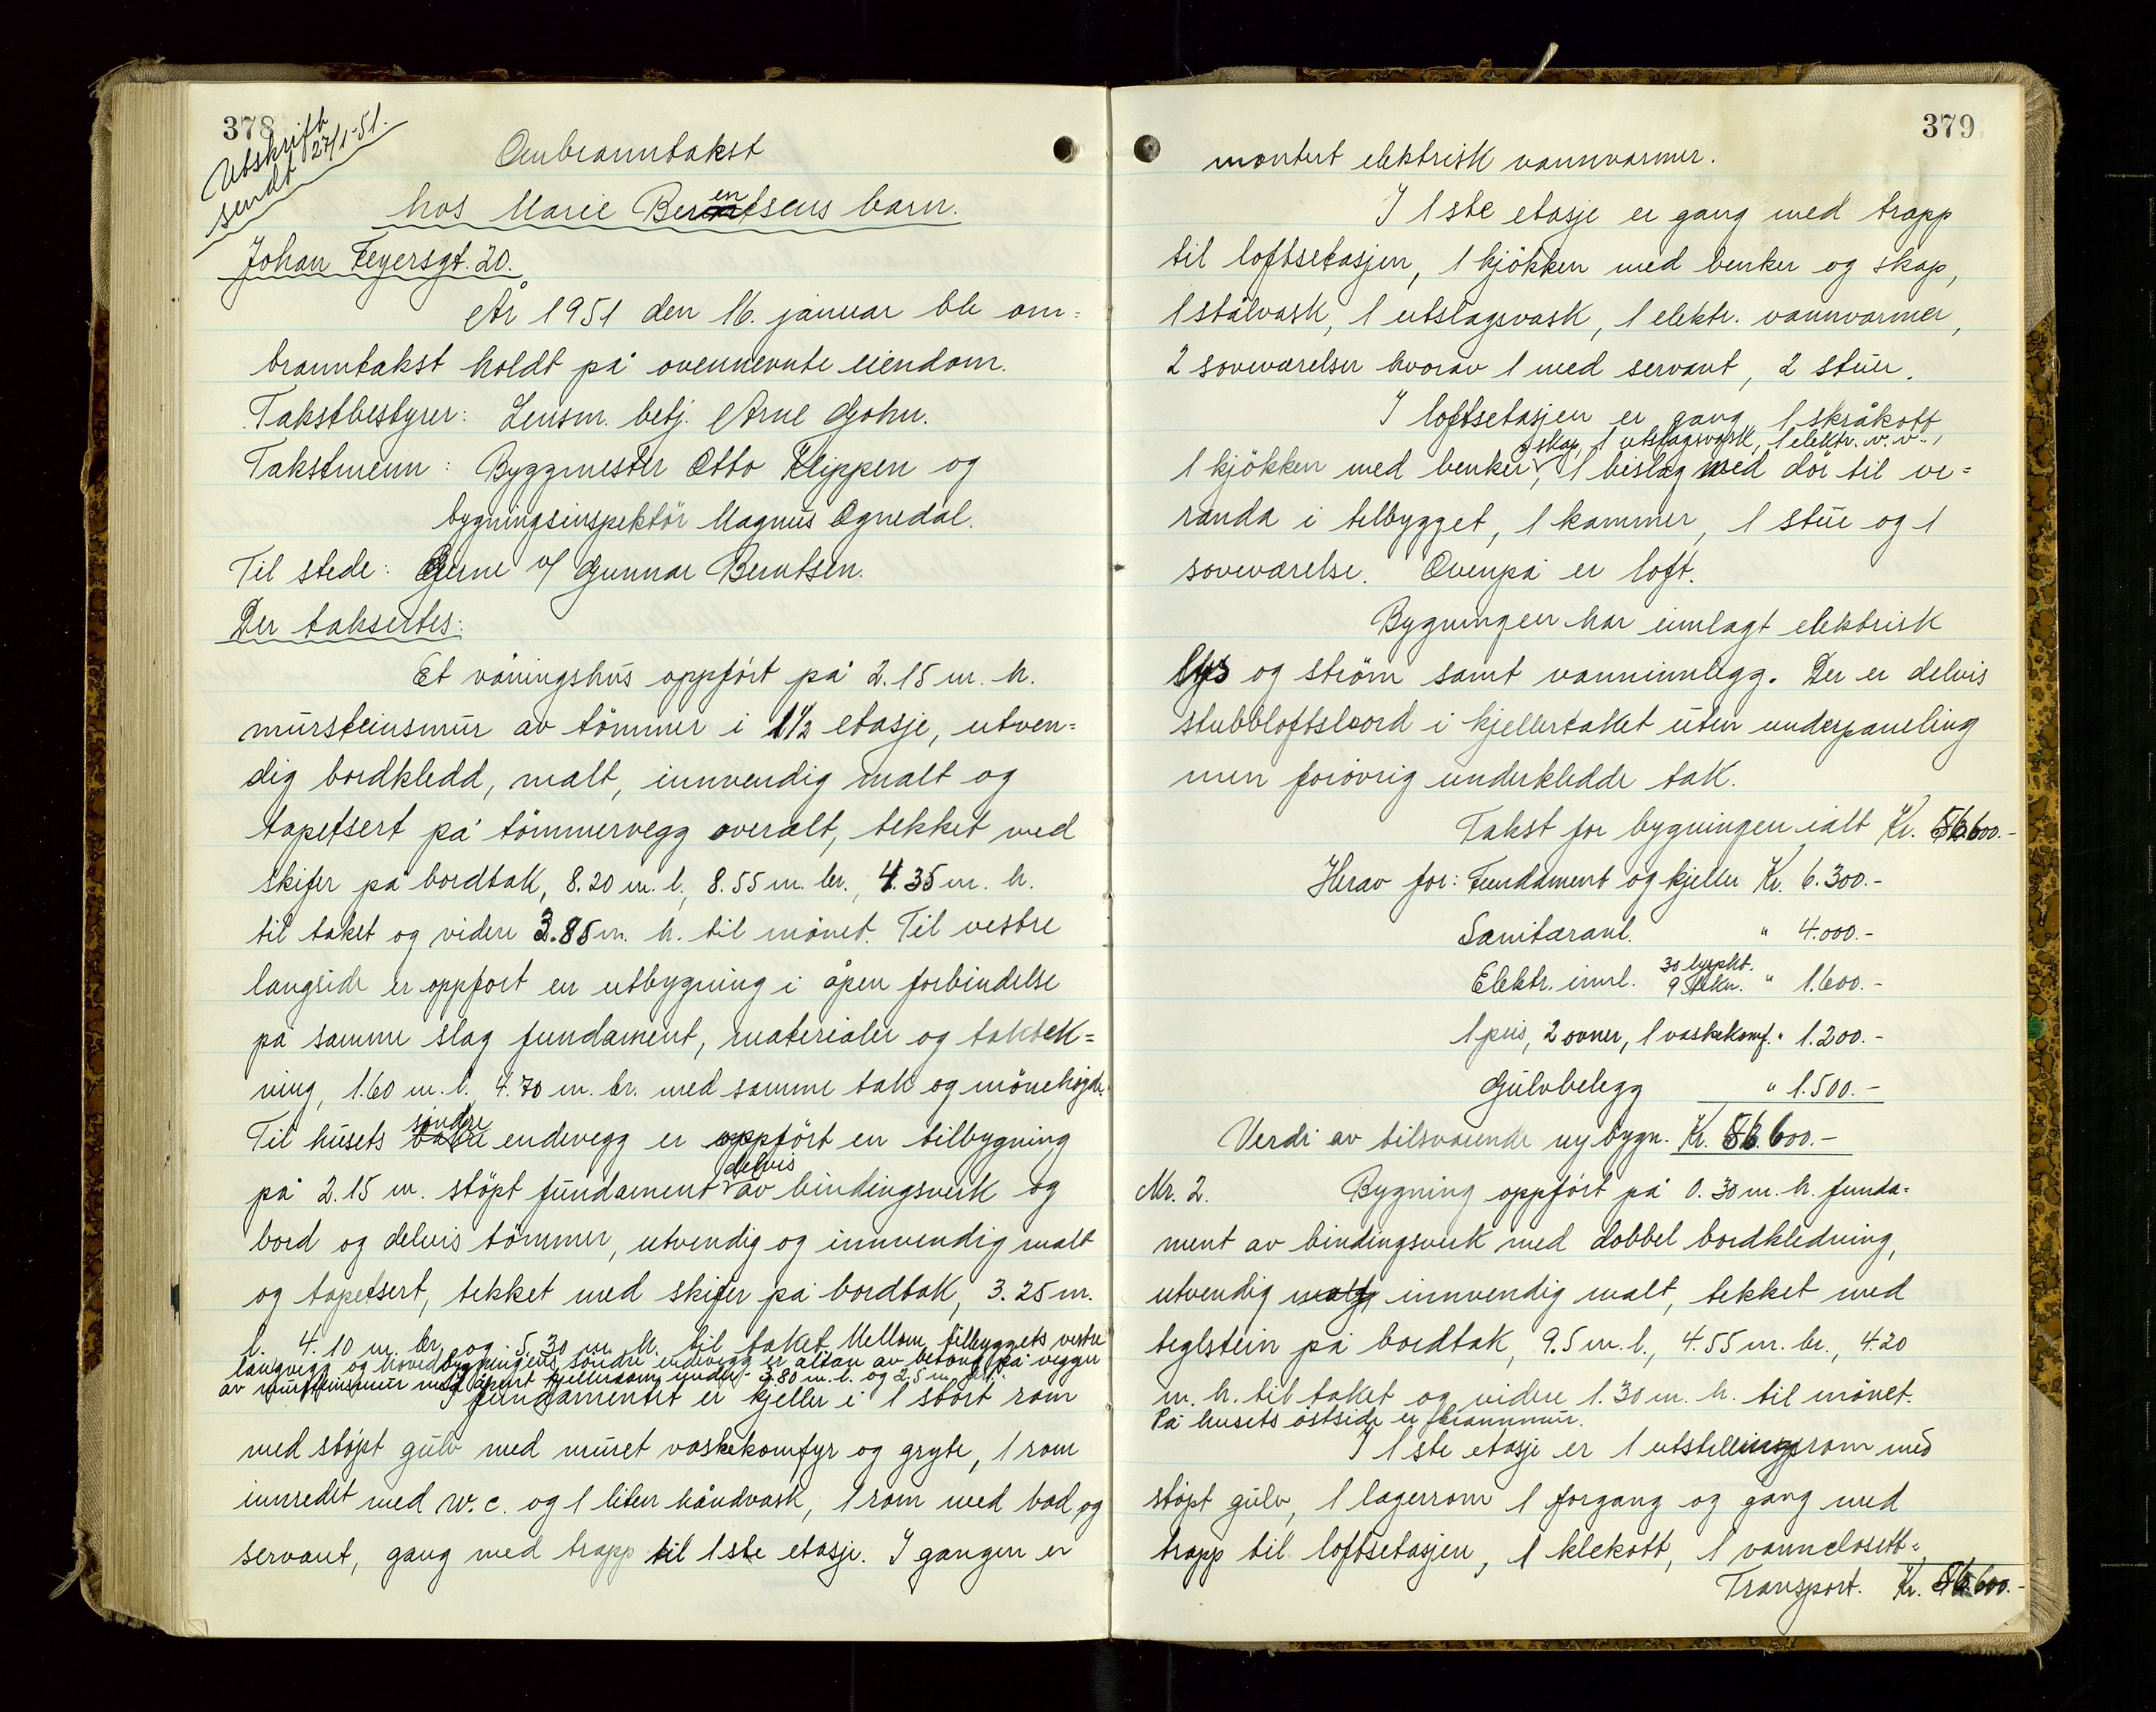 378
Utskrift
sendt 27/1-51.
Ombranntakst
hos Marie Berentsens barn.
Johan Feyersgt. 20.
År 1951 den 16. januar ble om=
branntakst holdt på ovennevnte eiendom.
Takstbestyrer: Lensm. betj. Arne Gjohn.
Takstmenn: Byggmester Otto Klippen og
bygningsinspektör Magnus Ognedal.
Til stede: Eierne v/ Gunnar Berntsen.
Der taksertes:
Et våningshus oppfört på 2.15 m. h.
mursteinsmur av tömmer i 1 1/2 etasje, utven=
dig bordkledd, malt, innvendig malt og
tapetsert på tömmervegg overalt, tekket med
skifer på bordtak, 8.20 m. l., 8.55 m. br., 4.35 m. h.
til taket og videre 3.85 m. h. til mönet. Til vestre
langside er oppfört en utbygning i åpen forbindelse
på samme slag fundament, materialer og taktek=
ning, 1.60 m. l. 4.70 m. br. med samme tak og mönehöjde.
Til husets söndre endevegg er oppfört en tilbygning
på 2.15 m. stöpt fundament delvis av bindingsverk og
bord og delvis tömmer, utvendig og innvendig malt
og tapetsert, tekket med skifer på bordtak, 3.25 m.
l. 4.10 m. br. og 5.30 m. h. til taket. Mellom tilbyggets vestre
langvegg og hovedbygningens söndre endevegg er altan av betong på vegger
av mursteinsmur med åpent kjellerrom under - 3.80 m. l. og 2.5 m. br.
I fundamentet er kjeller i 1 stort rom
med stöpt gulv med muret vaskekomfyr og gryte, 1 rom
innredet med w.c. og 1 liten håndvask, 1 rom med bad og
servant, gang med trapp til 1ste etasje. I gangen er
379
montert elektrisk vannvarmer.
I 1ste etasje er gang med trapp
til loftsetasjen, 1 kjökken med benker og skap,
1 stålvask, 1 utslagsvask, 1 elektr. vannvarmer,
2 soveværelser hvorav 1 med servant, 2 stuer.
I loftsetasjen er gang, 1 skråkott,
1 kjökken med benker og skap, 1 utslagsvask, 1 elektr. v.v., 1 beislag med dör til ve=
randa i tilbygget, 1 kammer, 1 stue og 1
soveværelse. Ovenpå er loft.
Bygningen har innlagt elektrisk
lys og ström samt vanninnlegg. Der er delvis
stubbloftsbord i kjellertaket uten underpaneling
men forövrig underkledde tak.
Takst for bygningen ialt Kr. 86.600.-
Herav for: Fundament og kjeller Kr. 6.300.-
Sanitæranl. " 4.000.-
Elektr. innl. 30 lyspkt. 9 stikk. " 1.600.-
1 peis, 2 ovner, 1 vaskekomf. " 1.200.-
Gulvbelegg " 1.500.-
Verdi av tilsvarende nybygn. Kr. 86.600.-
Nr. 2. Bygning oppfört på 0.30 m. h. funda=
ment av bindingsverk med dobbel bordkledning,
utvendig innvendig malt, tekket med
teglstein på bordtak, 9.5 m. l., 4.55 m. br., 4.20
m. h. til taket og videre 1.30 m. h. til mönet.
På husets östside er brannmur.
I 1ste etasje er 1 utstillingsrom med
stöpt gulv, 1 lagerrom 1 forgang og gang med
trapp til loftsetasjen, 1 klekott, 1 vannclosett=
Transport. Kr. 86.600.-